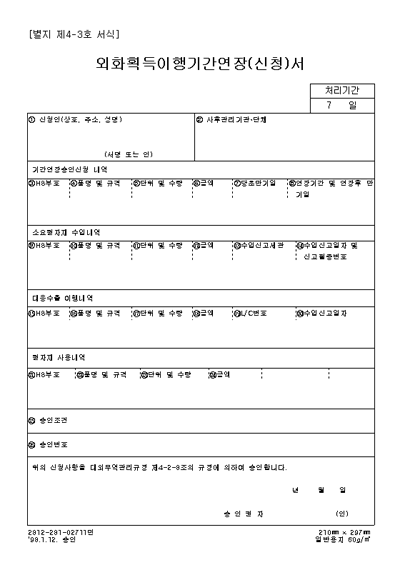 [별지 제4-3호 서식]
외화획득이행기간연장(신청)서
처리기간
7 일
① 신청인(상호, 주소, 성명)
② 사후관리기관·단체
(서명 또는 인)
기간연장승인신청 내역
③HS부호 ④품명 및 규격 ⑤단위 및 수량 ⑥금액 ⑦당초만기일 ⑧연장기간 및 연장후 만기일
소요원자재 수입내역
⑨HS부호 ⑩품명 및 규격 ⑪단위 및 수량 ⑫금액 ⑬수입신고세관 ⑭수입신고일자 및 신고필증번호
대응수출 이행내역
⑮HS부호 ⑯품명 및 규격 ⑰단위 및 수량 ⑱금액 ⑲L/C번호 ⑳수입신고일자
원자재 사용내역
㉑HS부호 ㉒품명 및 규격 ㉓단위 및 수량 ㉔금액
㉕ 승인조건
㉖ 승인번호
위의 신청사항을 대외무역관리규정 제4-2-8조의 규정에 의하여 승인합니다.
년 월 일
승 인 권 자 (인)
2812-281-02711민
'98.1.12. 승인
210㎜ × 297㎜
일반용지 60g/㎡